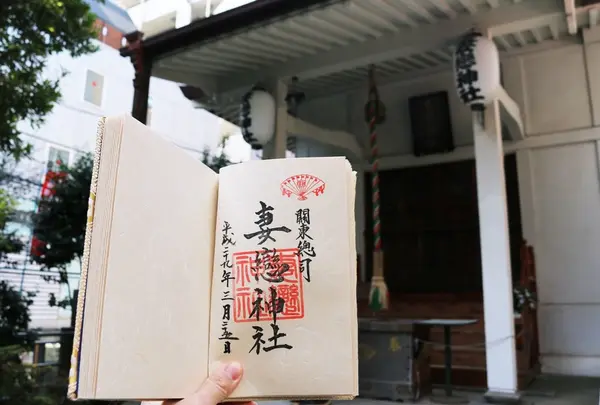 關東総司
妻戀神社
平成二十九年三月二十五日
神社